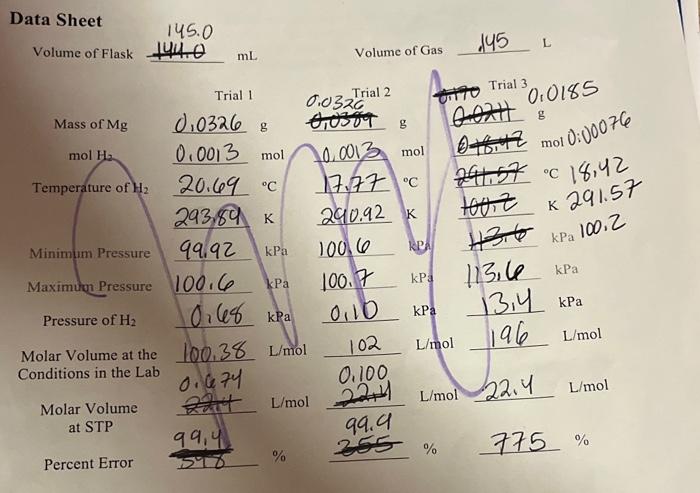 Data Sheet
145.0
Volume of Flask 144.0 mL Volume of Gas .145 L
Trial 1 Trial 2 Trial 3
0.0326 0.170 0.0185
Mass of Mg 0.0326 g 0.0389 g 0.0211 g
mol H2 0.0013 mol 0.0013 mol 018.42 mol 0.00076
Temperature of H2 20.69 °C 17.77 °C 291.57 °C 18.42
293.84 K 290.92 K 100.2 K 291.57
Minimum Pressure 99.92 kPa 100.6 kPa 113.6 kPa 100.2
Maximum Pressure 100.6 kPa 100.7 kPa 113.6 kPa
Pressure of H2 0.68 kPa 0.10 kPa 13.4 kPa
Molar Volume at the 100.38 L/mol 102 L/mol 196 L/mol
Conditions in the Lab
0.674 0.100
Molar Volume 22.4 L/mol 22.4 L/mol 22.4 L/mol
at STP
99.4 99.9
Percent Error 348 % 355 % 775 %